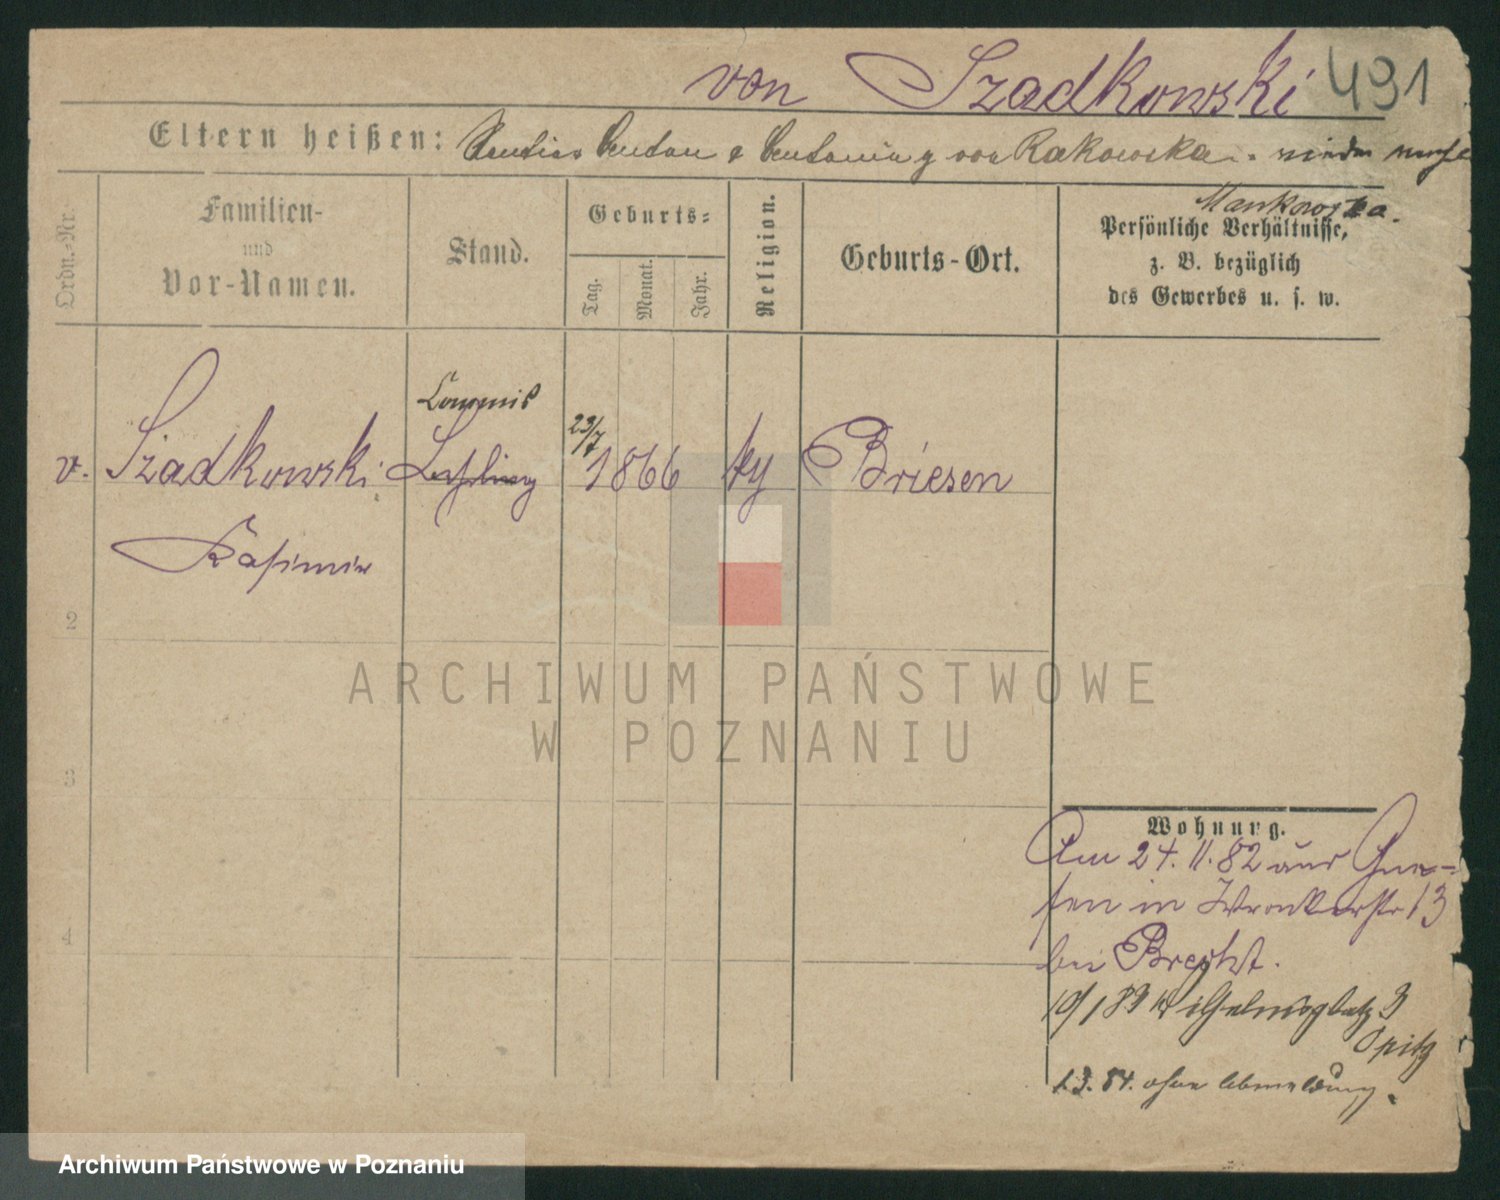 von Szadkowski 491
Eltern heißen: Rentier Anton & Antonina g von Rakowska
Mankowska.
Ordn.-Nr.
Familien-
und
Vor-Namen.
Stand.
Geburts-
Tag.
Monat.
Jahr.
Religion.
Geburts-Ort.
Persönliche Verhältnisse,
z. B. bezüglich
des Gewerbes u. s. w.
Commis
23/7
v. Szadkowski Lehrling 1866 ky Briesen
Kasimir
2
3
4
ARCHIWUM PAŃSTWOWE
W POZNANIU
Wohnung.
Am 24. 11. 82 aus Gne-
sen in Wronkerstr 13
bei Brecht.
10/1 83 Wilhelmsplatz 3
Opitz
1.3.84. ohne Abmeldung.
Archiwum Państwowe w Poznaniu